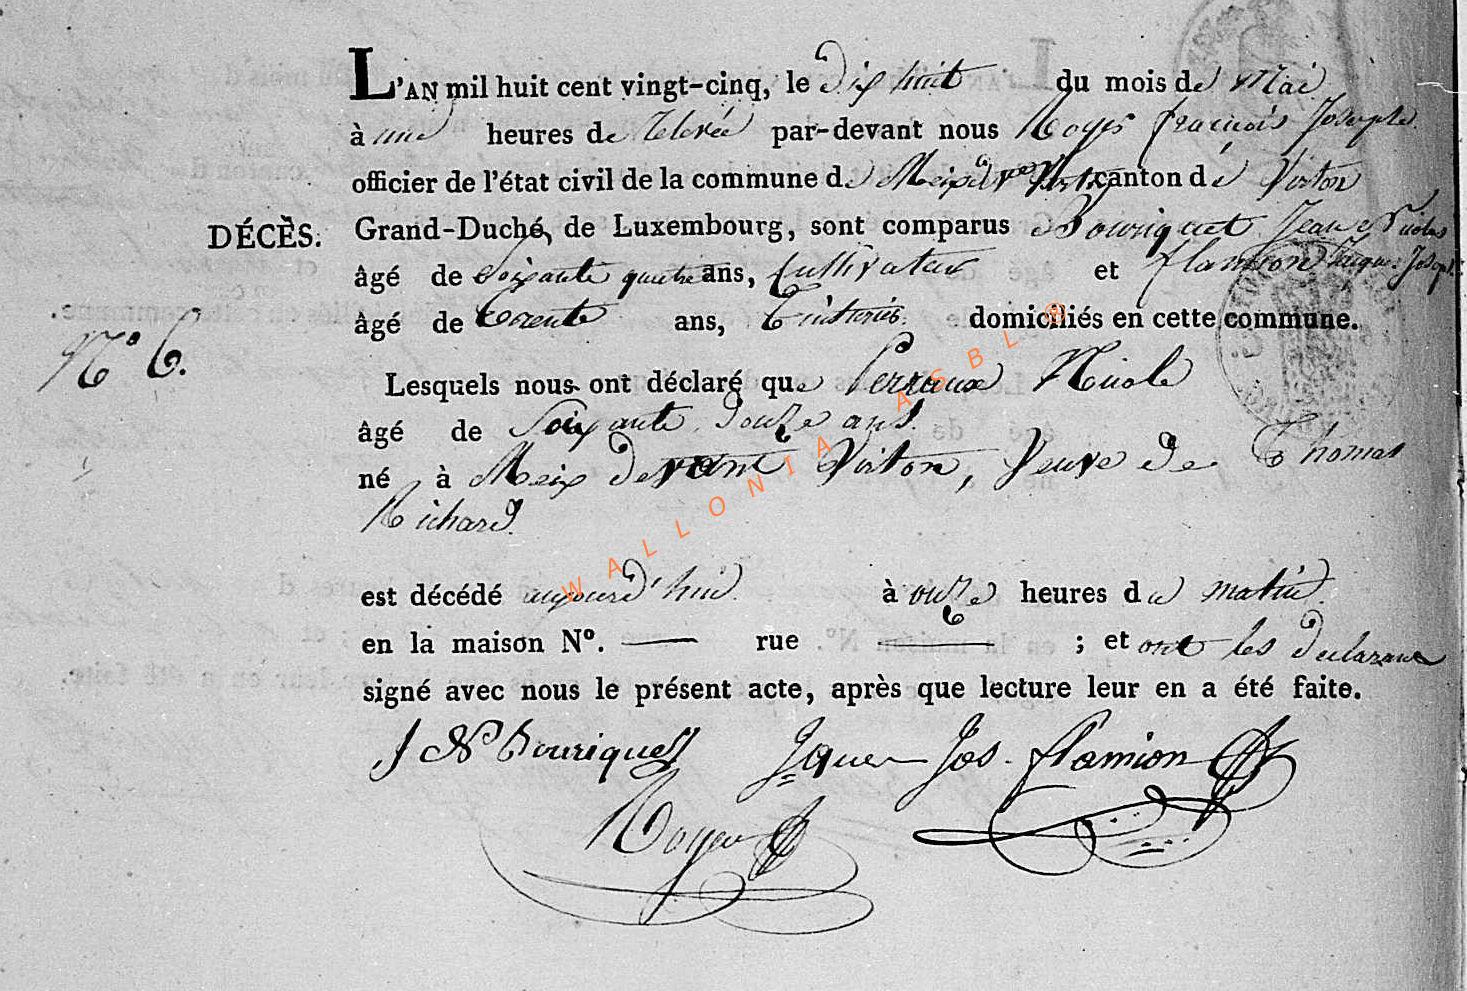 L'AN mil huit cent vingt-cinq, le dix huit du mois de Mai
à une heures de relevée par-devant nous Royer françois Joseph
officier de l'état civil de la commune de Meix dvt Virton canton de Virton
DÉCÈS. Grand-Duché, de Luxembourg, sont comparus Bouriquet Jean Nicolas
âgé de Soixante quatre ans, Cultivateur et flamion Jaque Joseph
âgé de Trente ans, domiciliés en cette commune.
N° 6.
Lesquels nous ont déclaré que Perraux Nicole
âgé de Soixante douze ans.
né à Meix devant Virton, Veuve de Thomas
Richard.
est décédé aujourd'hui à onze heures du matin.
en la maison N°. — rue — ; et ont les declarans
signé avec nous le présent acte, après que lecture leur en a été faite.
J N Bouriquet Jaque Jos. flamion
Royer
WALLONIA ASBL ®